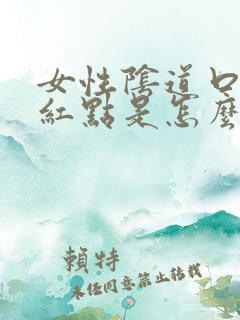 女性陰道口
紅點是怎麼
賴特
未經同意禁止轉載